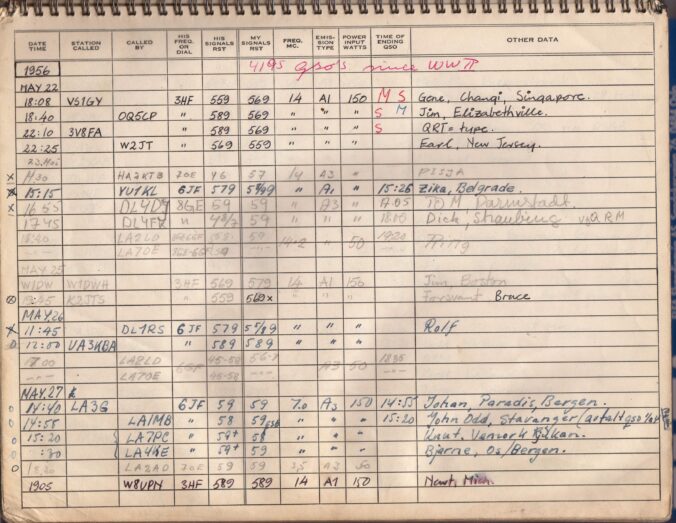 DATE TIME STATION CALLED CALLED BY HIS FREQ. OR DIAL HIS SIGNALS RST MY SIGNALS RST FREQ. MC. EMIS- SION TYPE POWER INPUT WATTS TIME OF ENDING QSO OTHER DATA
1956 4195 qso's since WW II
MAY 22
18:08 VS1GY 3HF 559 569 14 A1 150 M S Gene, Changi, Singapore.
18:40 OQ5CP " 589 569 " " " S M Jim, Elizabethville.
22:10 3V8FA " 589 569 " " " S QRT = type.
22:25 W2JT " 569 559 " " " Earl, New Jersey.
x HA2KTB 57 14 A3 "
x 15:15 YU1KL 6JF 579 " A1 " 15:26 Zika, Belgrade.
x 1655 DL4DY 8GE 59 59 " A3 " TOM Darmstadt.
1745 DL4FZ " 59 " " " 18:00 Dick, QRM
LA2LD 14.2 " 50 1920
LA7OE
MAY 25
W1DW W1DWH 3HF 569 579 14 A1 150 Jim, Boston
K2JTS " 559 569x " " " Bruce
MAY.26
x 11:45 DL1RS 6JF 579 " " " Rolf
o 12:00 UA3KBA " 589 589 " " "
17.00 LA2LD 45-58 A3 50 1835
LA7OE 45-58
MAY.27
o 14:40 LA3G 6JF 59 59 7.0 A3 150 14:55 Johan, Paradis, Bergen.
o 14:55 LA1MB " 58 59 " " " 15:20 John Odd, Stavanger
o 15:20 LA7PC " 59+ 58 " " " Knut,
o :30 LA4KE " 59+ 59 " " " Bjarne, Os/Bergen.
o LA2AD 59 59 3,5 A3 50
1905 W8UPN 3HF 589 589 14 A1 150 Mich.